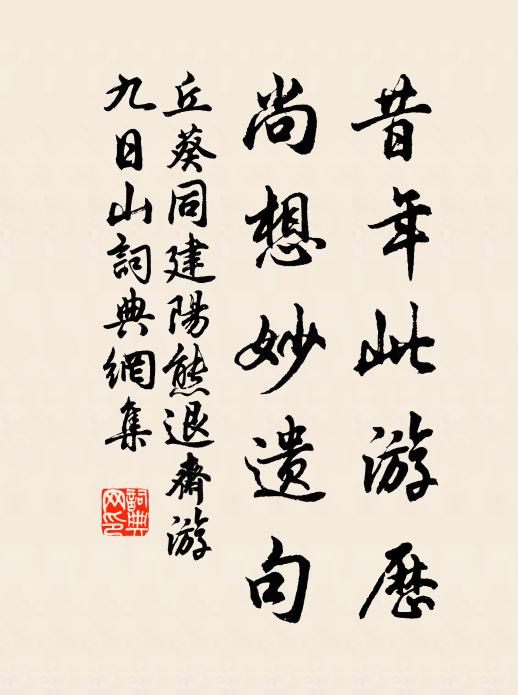 昔年此游历
尚想妙遗句
丘葵同建陽熊退齋游
九日山詞典網集
詞典网印